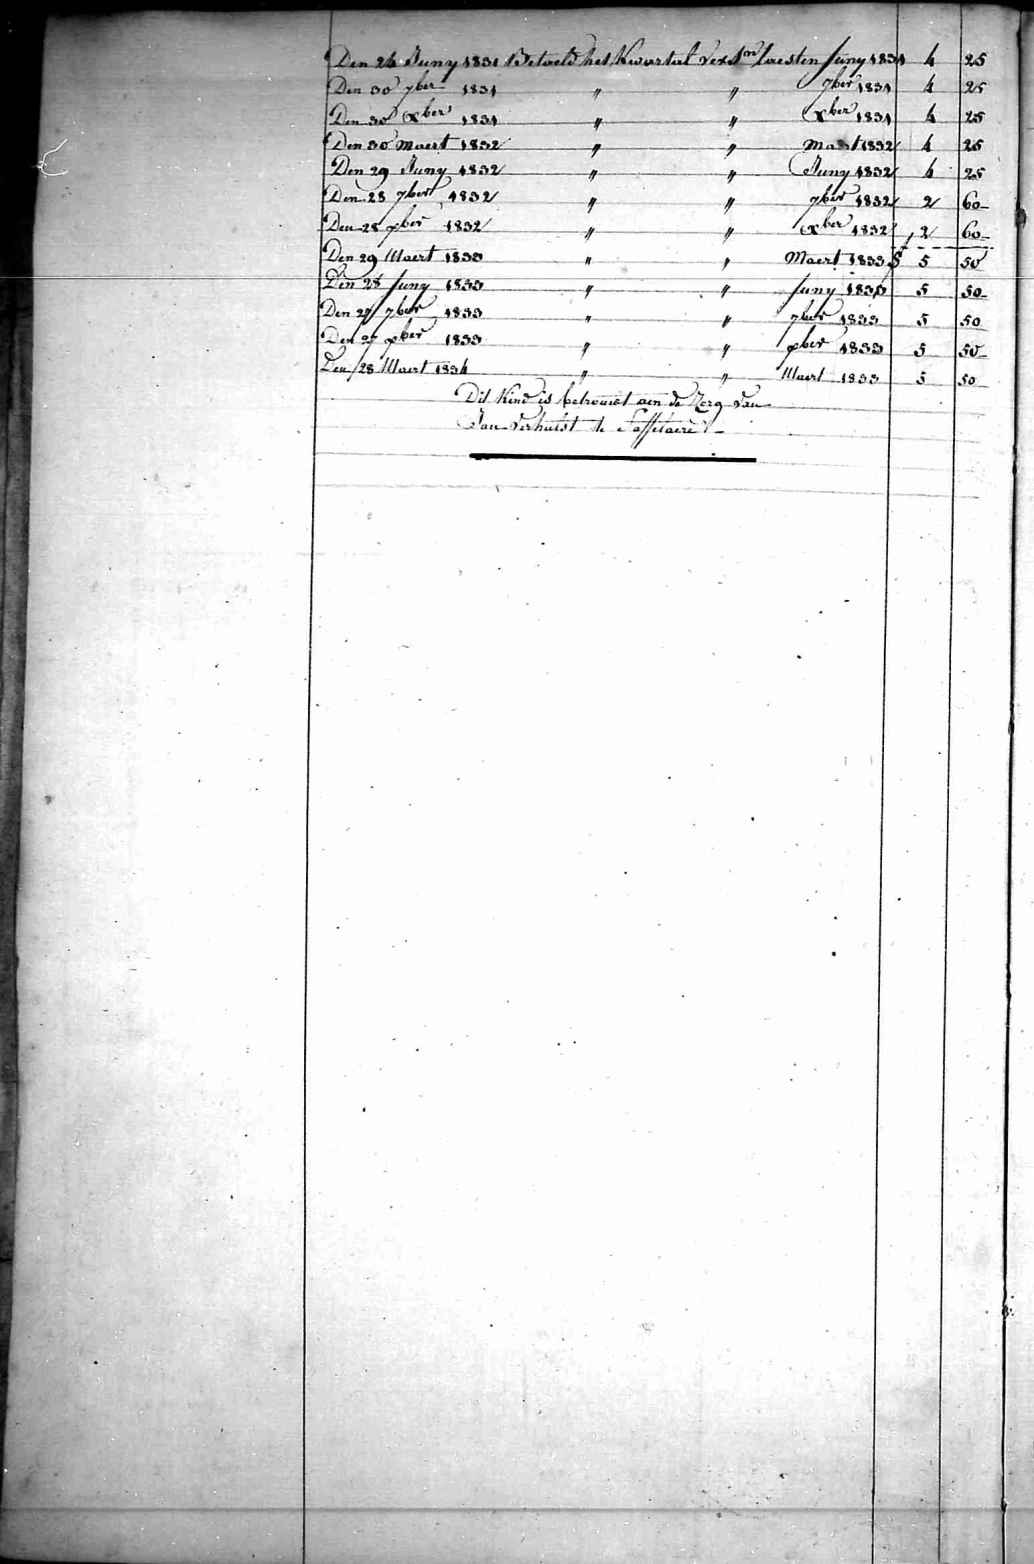 Den 24 Juny 1831 Betaeld het Kwartael Versn laesten Juny 1831 4 25
Den 30 7ber 1831 " " 7ber 1831 4 25
Den 30 Xber 1831 " " Xber 1831 4 25
Den 30 Maert 1832 " " Maert 1832 4 25
Den 29 Juny 1832 " " Juny 1832 4 25
Den 28 7ber 1832 " " 7ber 1832 2 60
Den 28 Xber 1832 " " Xber 1832 2 60
Den 29 Maert 1833 " " Maert 1833 5 50
Den 28 Juny 1833 " " Juny 1833 5 50
Den 27 7ber 1833 " " 7ber 1833 5 50
Den 27 Xber 1833 " " Xber 1833 5 50
Den 28 Maert 1834 " " Maert 1833 5 50
Dit Kind is betrouwt aen de Zorg van
Jan Verhulst te